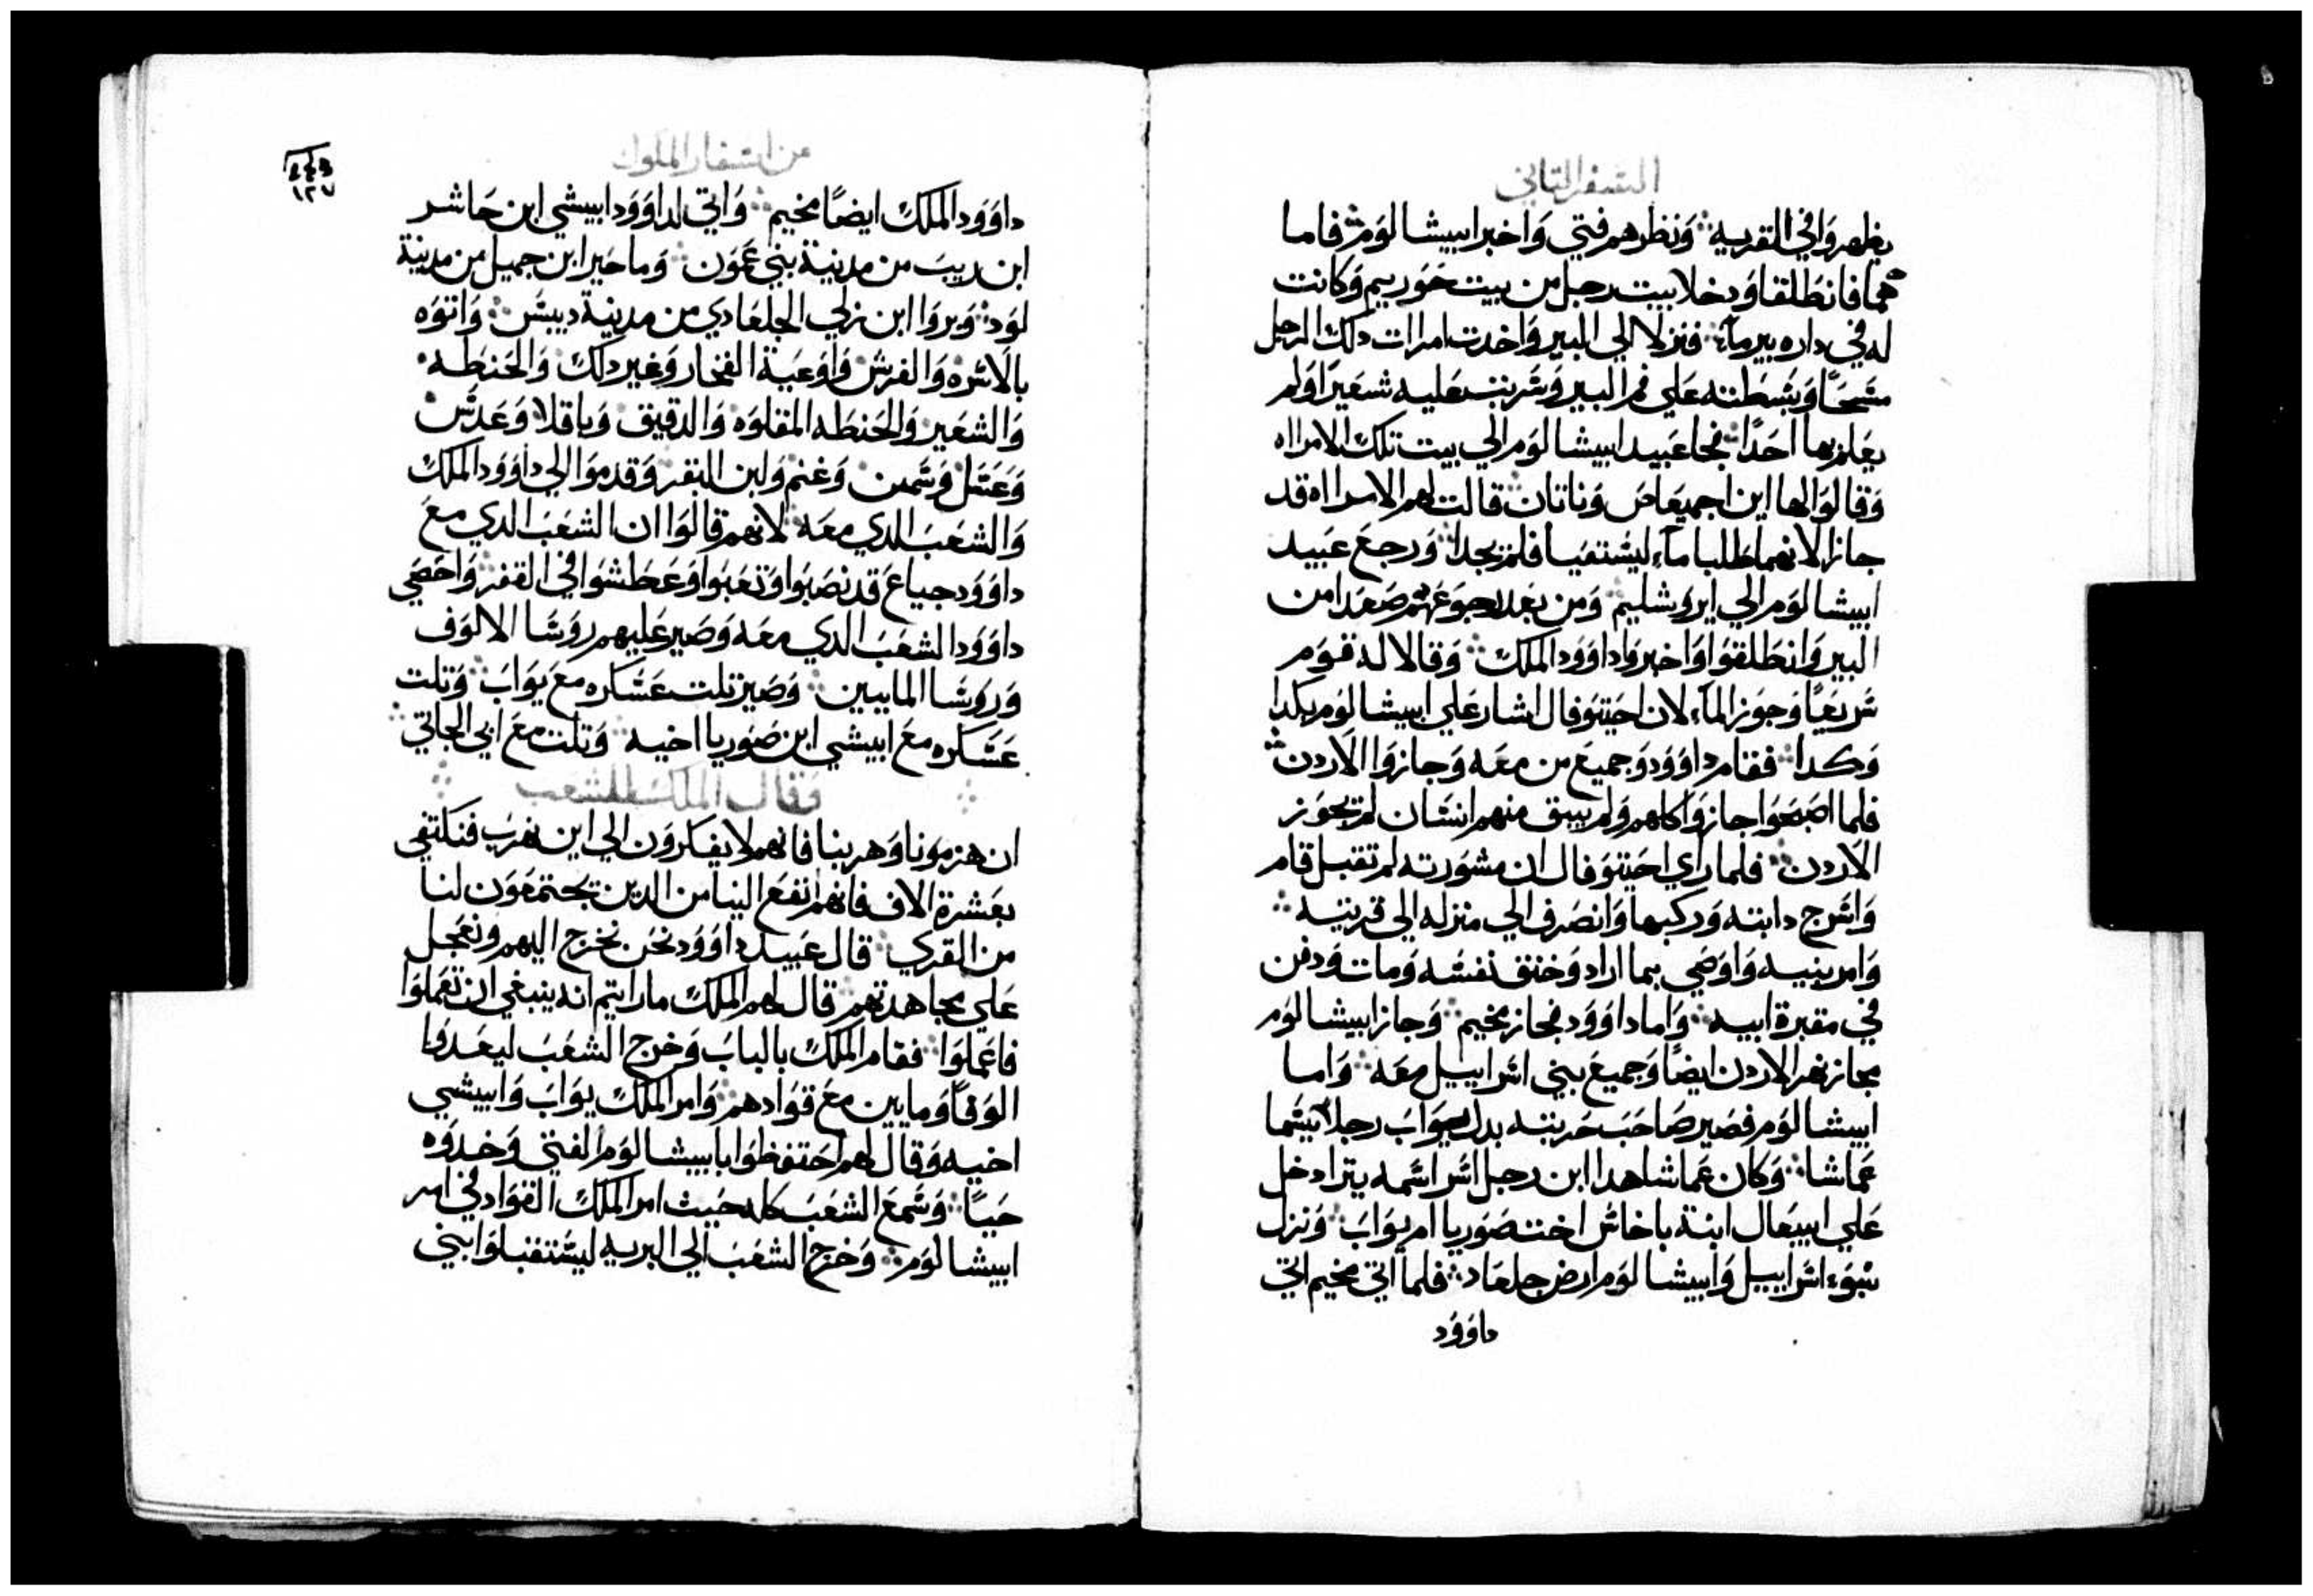 السفر التاني
يظهروا في القريه ۞ ونظرهم فتي واخبر ابيشالوم ۞ فاما
هما فانطلقا ودخلا بيت رجل من بيت حوريم وكانت
له في داره بير مآء ۞ فنزلا الي البير واخدت امرات دلك الرجل
مسحًا وبسطته علي فم البير وشربت عليه شعيرا ولم
يعلم بها احدًا ۞ فجا عبيد ابيشالوم الي بيت تلك الامراه
وقالوا لها اين اجميعاص وناتان ۞ قالت لهم الامراه قد
جازا لانهما طلبا مآء ليستقيا فلم يجدا ۞ ورجع عبيد
ابيشالوم الي ايروشليم ۞ ومن بعد رجوعهم صعدا من
البير وانطلقوا واخبروا داوود الملك ۞ وقالا له قوم
سريعًا وجوز المآء لان احيتوفال اشار علي ابيشالوم بكدا
وكدا ۞ فقام داوود وجميع من معه وجازوا الاردن ۞
فلما اصبحوا جازوا كلهم ولم يبق منهم انسان لم يجوز
الاردن ۞ فلما راي احيتوفال ان مشورته لم تقبل قام
واسرج دابته وركبها وانصرف الي منزله الي قريته ۞
وامر بنيه واوصي بما اراد وخنق نفسه ومات ودفن
في مقبرة ابيه ۞ واما داوود فجاز مخيم ۞ وجاز ابيشالوم
مجاز نهر الاردن ايضًا وجميع بني اسراييل معه ۞ واما
ابيشالوم فصير صاحب حربته بدل يواب رجلا يسما
عماشا ۞ وكان عماشا هدا ابن رجل اسراسمه يترا دخل
علي ابيبعال ابنة باخاش اخت صوريا ام يواب ۞ ونزل
بنوء اسراييل وابيشالوم ارض جلعاد ۞ فلما اتي مخيم اتي
داوود
من اسفار الملوك
١٢٧
داوود الملك ايضًا مخيم ۞ واتي لداوود ابيشي ابن حاشر
ابن ربيب من مدينة بني عمون ۞ وماخير ابن جميل من مدينة
لود ۞ وبروا ابن زلي الجلعادي من مدينة دبيس ۞ واتوه
بالاسره والفرش واوعية الفخار وغير دلك والحنطه ۞
والشعير والحنطه المقلوه والدقيق وباقلا وعدس ۞
وعسل وسمن وغنم ولبن البقر وقدموا الي داوود الملك
والشعب الدي معه ۞ لانهم قالوا ان الشعب الدي مع
داوود جياع قد نصبوا وتعبوا وعطشوا في القفر ۞ واحصي
داوود الشعب الدي معه وصير عليهم روسا الالوف
وروسا المايين ۞ وصير تلت عساكره مع يواب ۞ وتلت
عساكره مع ابيشي ابن صوريا اخيه ۞ وتلت مع ابي الجاتي ۞
وقال الملك للشعب
ان هزمونا وهربنا فانهم لا يفكرون الي اين نهرب فنكتفي
بعشرة الاف فانهم انفع الينا من الدين يجتمعون لنا
من القري ۞ قال عبيد داوود نحن نخرج اليهم ونعجل
علي مجاهدتهم ۞ قال لهم الملك ما رايتم انه ينبغي ان تعملوا
فاعملوا ۞ فقام الملك بالباب وخرج الشعب ليعدوا
الوفًا ومايين مع قوادهم ۞ وامر الملك يواب وابيشي
اخيه وقال لهم احتفظوا بابيشالوم الفتي وخدوه
حيًا ۞ وسمع الشعب كله حيث امر الملك القواد في امر
ابيشالوم ۞ وخرج الشعب الي البريه ليستقبلوا بني